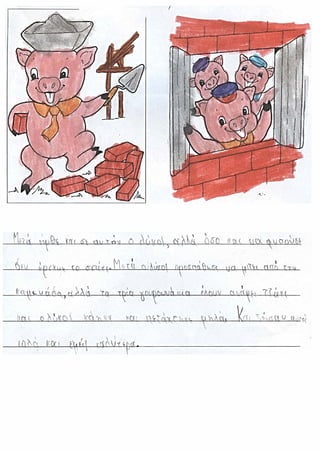 Μετά ήρθε και σε αυτόν ο λύκος, αλλά όσο και να φυσούσε
δεν έπεφτε το σπίτι. Μετά ο λύκος προσπάθησε να μπει από την
καμινάδα, αλλά τα τρία γουρουνάκια είχαν ανάψει τζάκι
και ο λύκος κάηκε και πετάχτηκε ψηλά. Και ζήσαν αυτοί
καλά και εμείς καλύτερα.